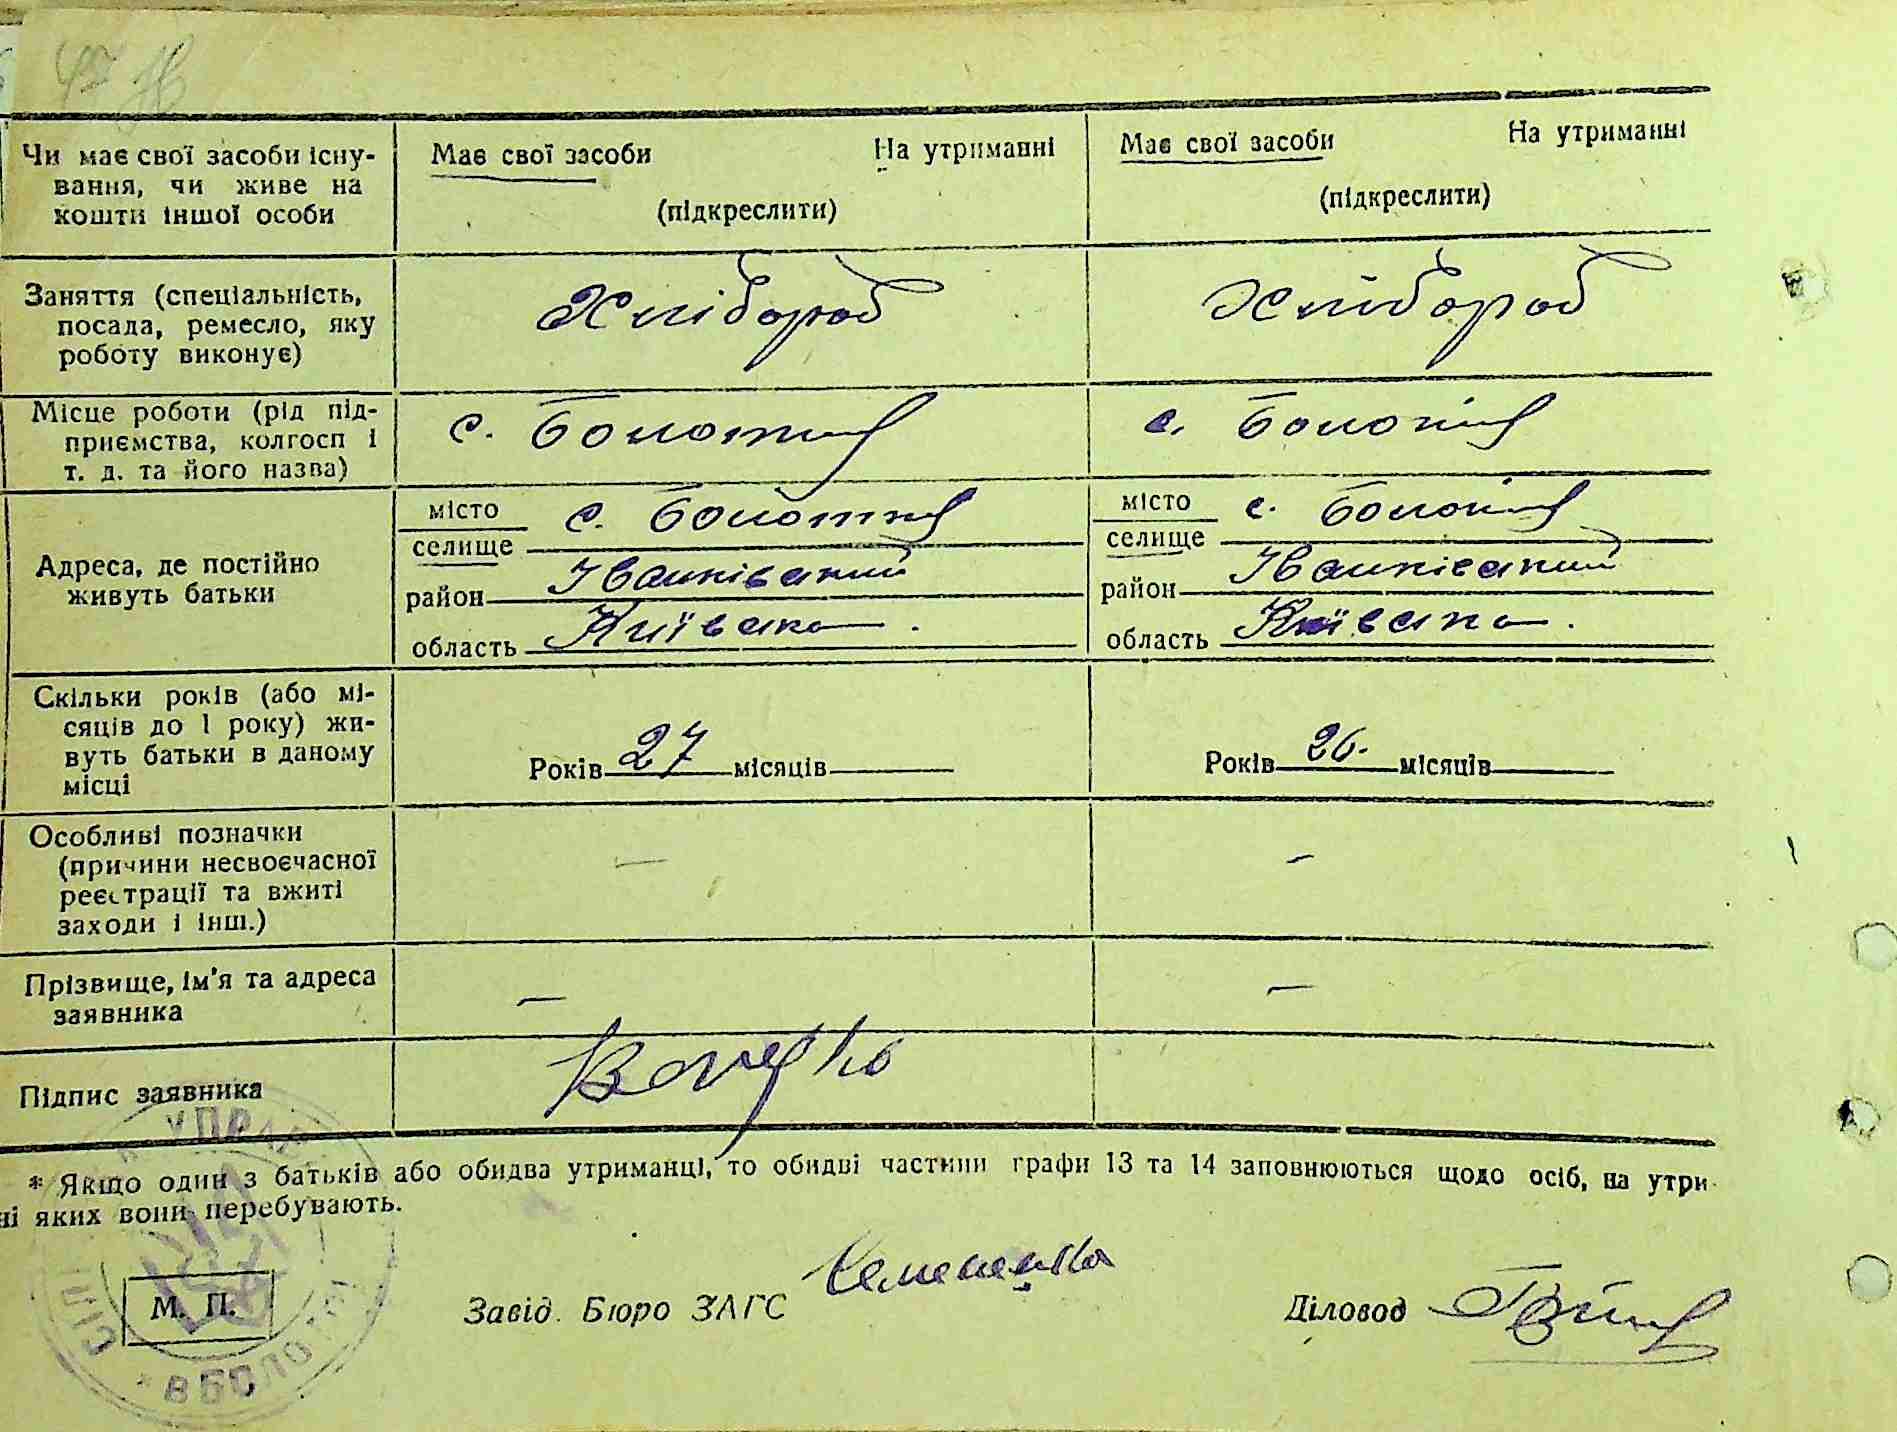 Чи має свої засоби існу-
вання, чи живе на
кошти іншої особи
Має свої засоби На утриманні
(підкреслити)
Має свої засоби На утриманні
(підкреслити)
Заняття (спеціальність,
посада, ремесло, яку
роботу виконує)
Хлібороб
Хлібороб
Місце роботи (рід під-
приємства, колгосп і
т. д. та його назва)
с. Болотня
с. Болотня
Адреса, де постійно
живуть батьки
місто
селище с. Болотня
район Іванківський
область Київська.
місто
селище с. Болотня
район Іванківський
область Київська.
Скільки років (або мі-
сяців до 1 року) жи-
вуть батьки в даному
місці
Років 27 місяців
Років 26. місяців
Особливі позначки
(причини несвоєчасної
реєстрації та вжиті
заходи і інш.)
—
—
Прізвище, ім'я та адреса
заявника
—
—
Підпис заявника
* Якщо один з батьків або обидва утриманці, то обидві частини графи 13 та 14 заповнюються щодо осіб, на утри
ні яких вони перебувають.
М. П.
Завід. Бюро ЗАГС
Діловод